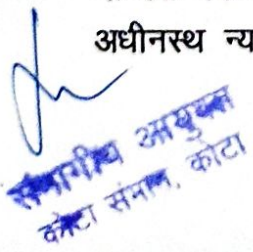 अधीनस्थ न्य
संभागीय आयुक्त
कोटा संभाग, कोटा